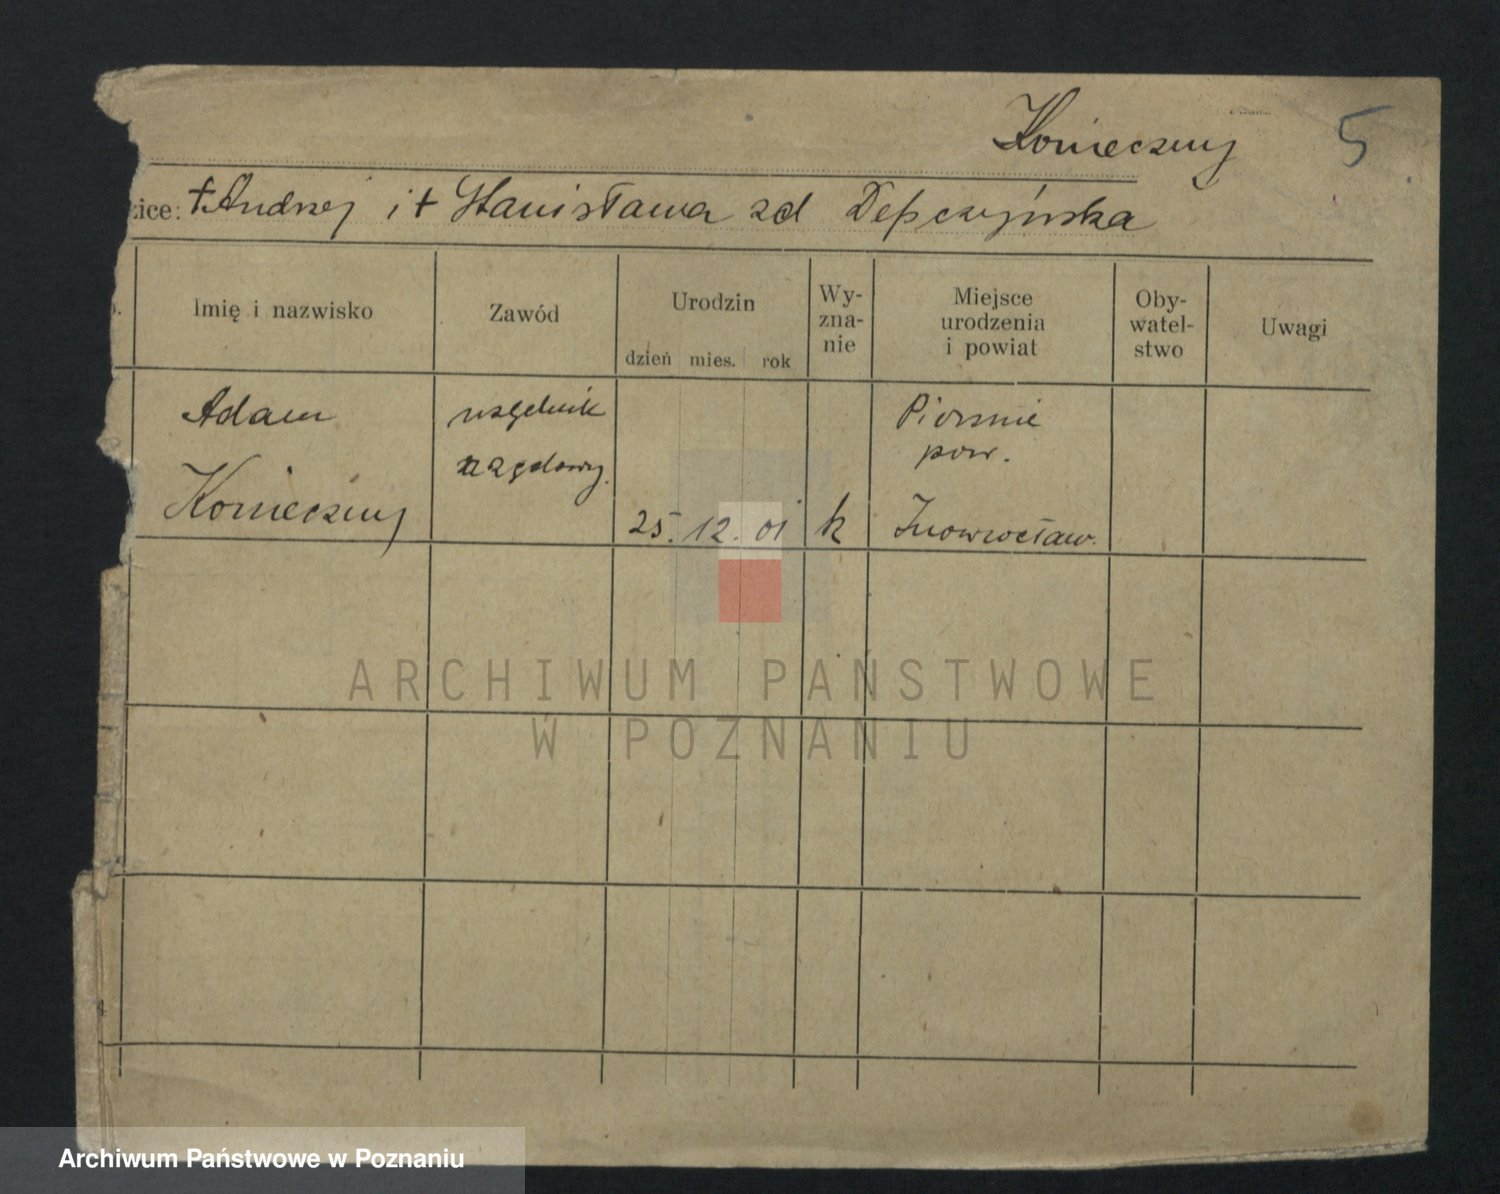 Konieczny 5
zice: †Andrzej i † Stanisława zd Depczyńska
Imię i nazwisko
Zawód
Urodzin
dzień mies. rok
Wy-
zna-
nie
Miejsce
urodzenia
i powiat
Oby-
watel-
stwo
Uwagi
Adam
Konieczny
urzędnik
25. 12. 01
k
pow.
Inowrocław.
ARCHIWUM PAŃSTWOWE
W POZNANIU
4
Archiwum Państwowe w Poznaniu